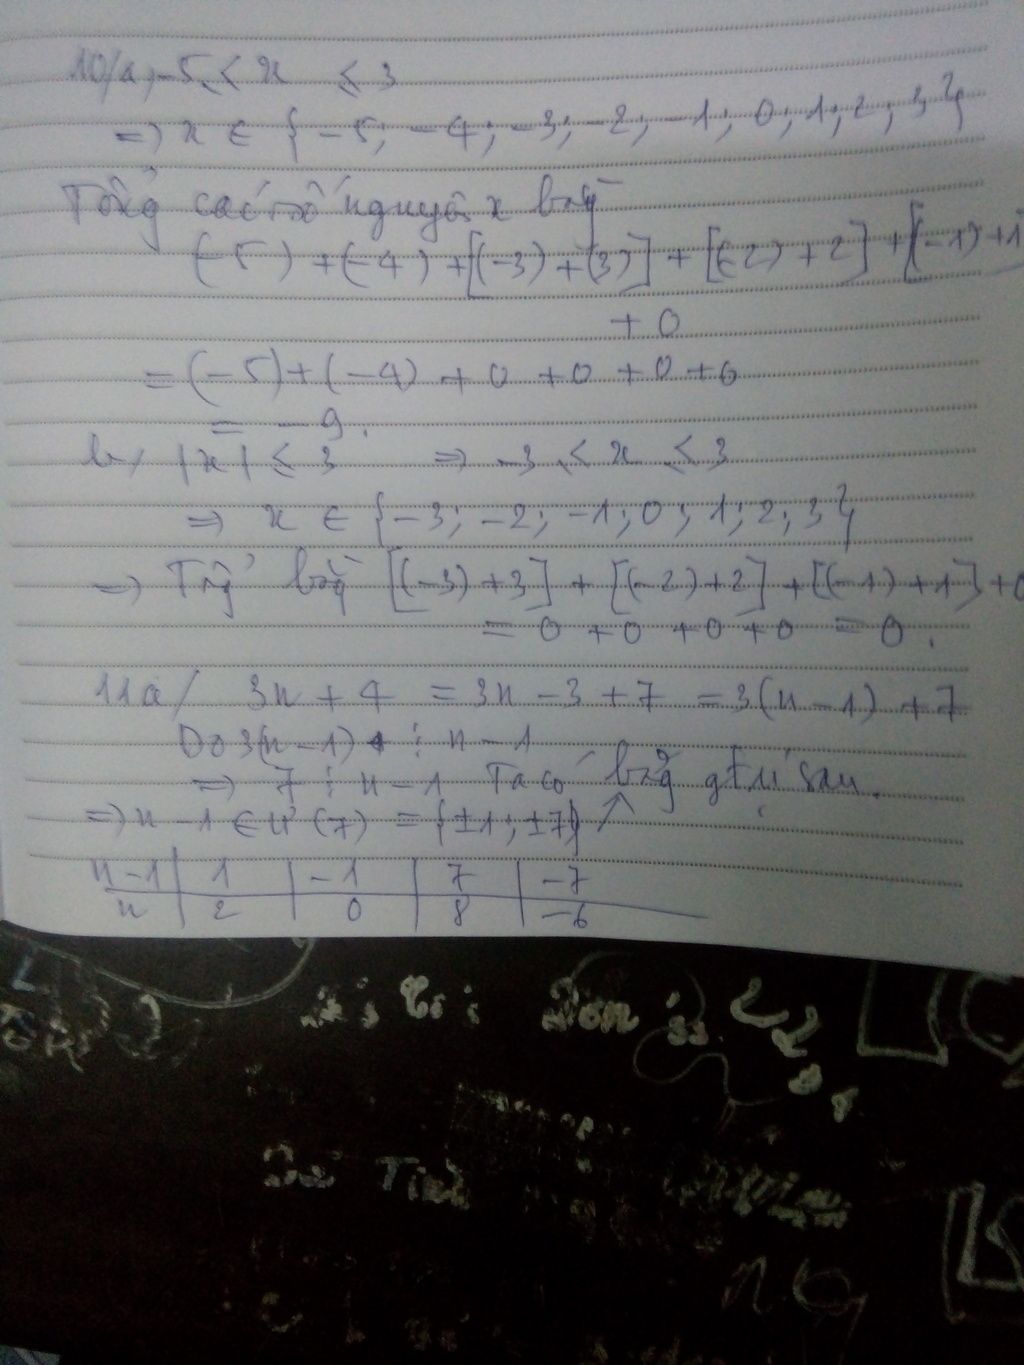 10/a, -5 ≤ x ≤ 3
=> x ∈ { -5; -4; -3; -2; -1; 0; 1; 2; 3 }
Tổng các số nguyên x bằng
(-5) + (-4) + [(-3) + (3)] + [(-2) + 2] + [(-1) + 1]
+ 0
= (-5) + (-4) + 0 + 0 + 0 + 0
= -9.
b/ |x| ≤ 3 => -3 ≤ x ≤ 3
=> x ∈ { -3; -2; -1; 0; 1; 2; 3 }
=> Tổg bằg [(-3) + 3] + [(-2) + 2] + [(-1) + 1] + 0
= 0 + 0 + 0 + 0 = 0.
11a/ 3n + 4 = 3n - 3 + 7 = 3(n - 1) + 7
Do 3(n - 1) ⋮ n - 1
=> 7 ⋮ n - 1 Ta có bảg gtrị sau.
=> n - 1 ∈ Ư (7) = { ±1; ±7 }
n - 1 | 1 | -1 | 7 | -7
n | 2 | 0 | 8 | -6